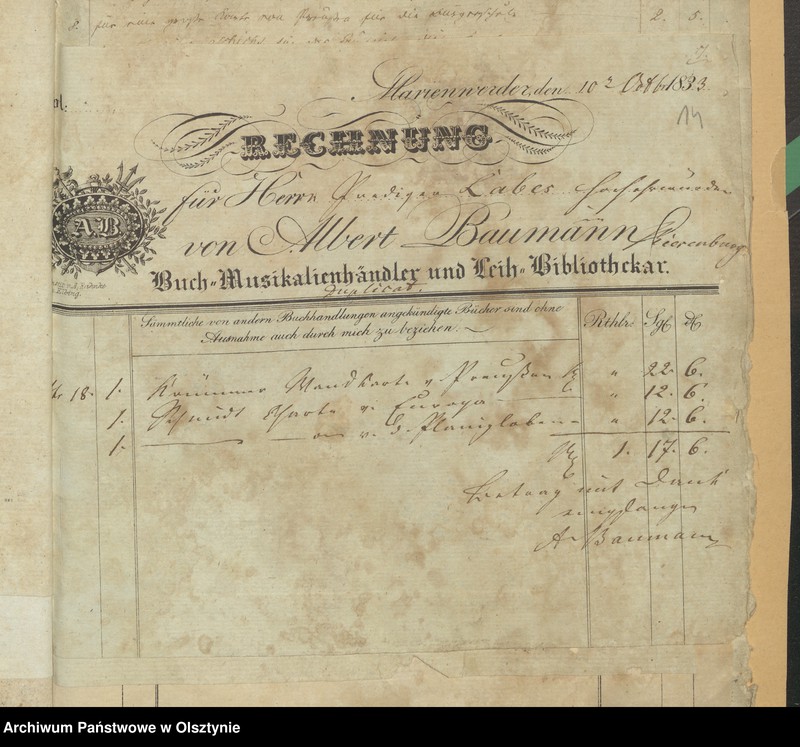 2. für eine große Karte von Preußen für die Bürgerschule 2. 5.
Marienwerder, den 10 Octbr 1833.
14
RECHNUNG
für Herrn Prediger Labes Hochehrwürden
von Albert Baumann Riesenburg
A.B
Buch-Musikalienhändler und Leih-Bibliothekar.
Duplicat.
Sämmtliche von andern Buchhandlungen angekündigte Bücher sind ohne
Ausnahme auch durch mich zu beziehen.
Rthlr. Sgl
18. 1. Krümmer Wandkarte v Preußen " 22. 6.
1. Schmidt Charte v. Europa " 12. 6.
1. v. d. Planigloben " 12. 6.
1. 17. 6.
Betrag mit Dank
empfangen
A. Baumann
Archiwum Państwowe w Olsztynie